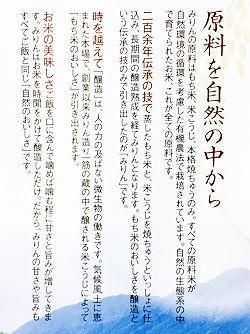 原料を自然の中から
みりんの原料はもち米、米こうじ、本格焼ちゅうのみ。すべての原料米が
自然環境の循環を考慮した有機農法で栽培されています。自然の生態系の中
で育てられたお米、これが全ての原料です。
二百余年伝承の技で 蒸したもち米と、米こうじを焼ちゅうといっしょに仕
込み、長期間の醸造熟成を経てみりんとなります。もち米のおいしさを醸造と
いう伝承の技のみで引き出したのが「みりん」です。
時を越えて 「醸造」は、人の力の及ばない微生物の働きです。気候風土に恵
まれた本場で、創業以来みりん造り一筋の蔵の中で醸される米こうじによって
「もち米のおいしさ」が引き出されます。
お米の美味しさ ご飯を口に含んで噛めば噛む程に甘さと旨みが増してきま
す。みりんはお米を時間をかけて醸造しただけ。だから、みりんの甘さや旨みも
すべてご飯と同じ「自然のおいしさ」です。